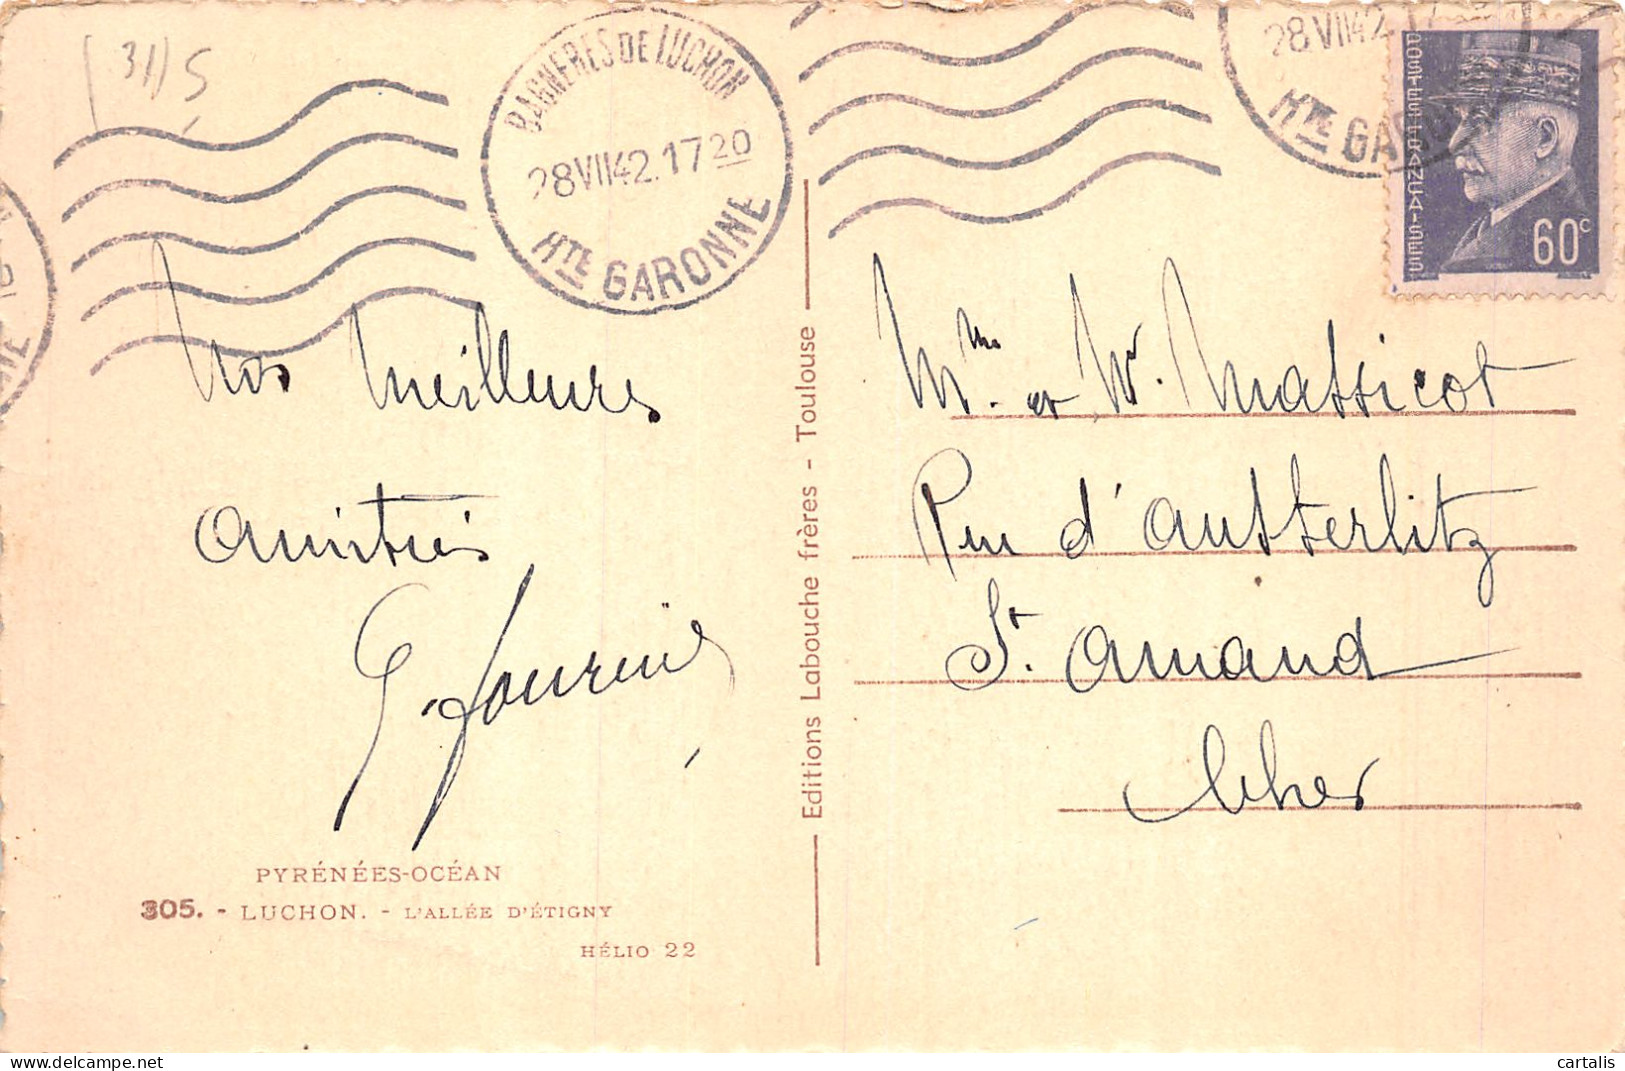 (31) 5
BAGNERES DE LUCHON
28 VII 42. 17 20
HTE GARONNE
28 VII 42
HTE GARONNE
POSTES FRANÇAISES
60c
Nos Meilleures
Amitiés
G. Fournié
Mme et Mr. Massicot
Rue d'Austerlitz
St. Amand
Cher
Editions Labouche frères - Toulouse
PYRÉNÉES-OCÉAN
305. - LUCHON. - L'ALLÉE D'ÉTIGNY
HÉLIO 22
www.delcampe.net
cartalis